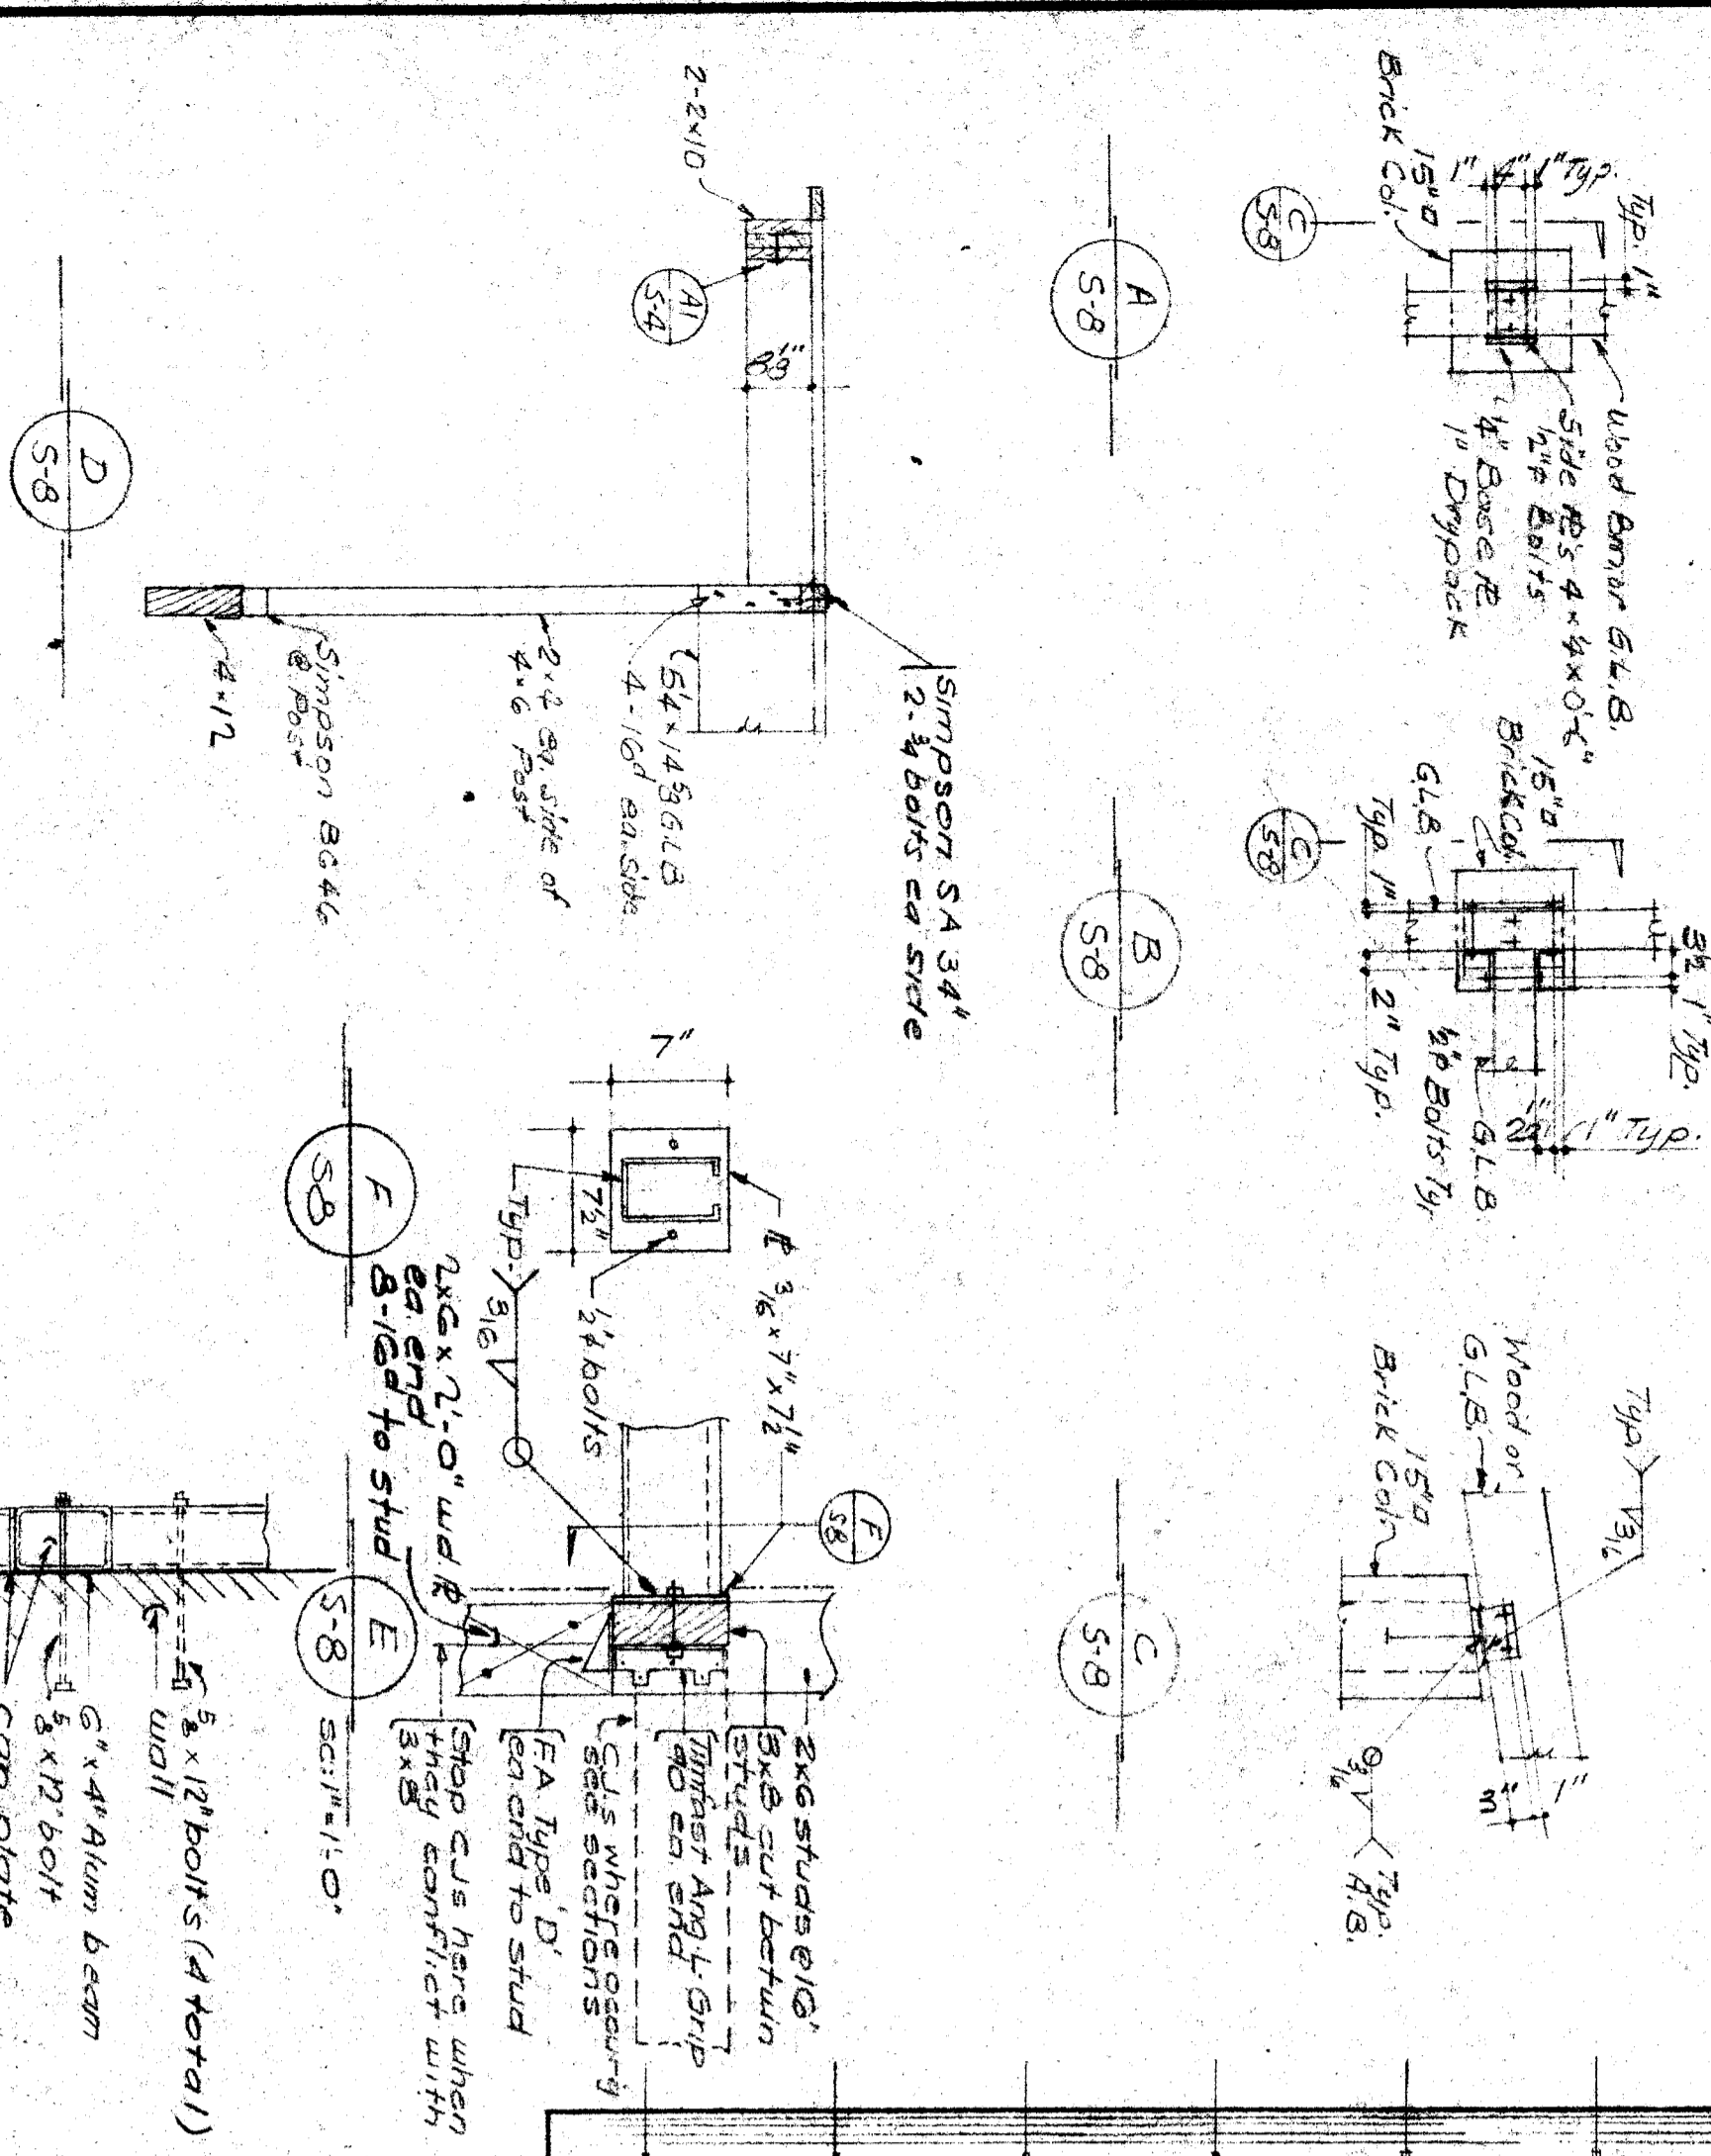 Typ. 1"
1" 4" 1" Typ.
15"□
Brick Col.
C
S-8
Wood Bm or G.L.B.
Side ℞'s 4 x ¼ x 0'-6"
½"φ Bolts
¼" Base ℞
1" Drypack
A
S-8
3½ 1" Typ.
15"□
Brick Col.
G.L.B
Typ 1"
2" Typ.
½"φ Bolts Typ
G.L.B.
2½" 1" Typ.
C
S-8
B
S-8
Typ. 3/16
Wood or
G.L.B.
15"□
Brick Colm
3" 1"
3/16 Typ.
A.B.
C
S-8
2-2x10
A1
S-4
8⅛"
Simpson SA 34"
2-¾ bolts ea side
5¼ x 14⅝ G.L.B
4-16d ea. Side
2x4 ea. side of
4x6 Post
Simpson BC46
@ Post
4x12
D
S-8
7"
7½"
℞ 3/16 x 7" x 7½"
½"φ bolts
Typ. 3/16
F
S-8
F
S8
2x6 x 2'-0" wd ℞
ea. end
8-16d to stud
2x6 studs @ 16"
3x8 cut betwin
studs
Timfast Ang-L-Grip
90 ea. end
CJs where occur
see sections
F.A. Type 'D'
ea. end to stud
Stop CJs here when
they conflict with
3x8
E
S-8
sc: 1"=1'-0"
⅝ x 12" bolts (4 total)
wall
6" x 4" Alum beam
⅝ x 12" bolt
cap plate